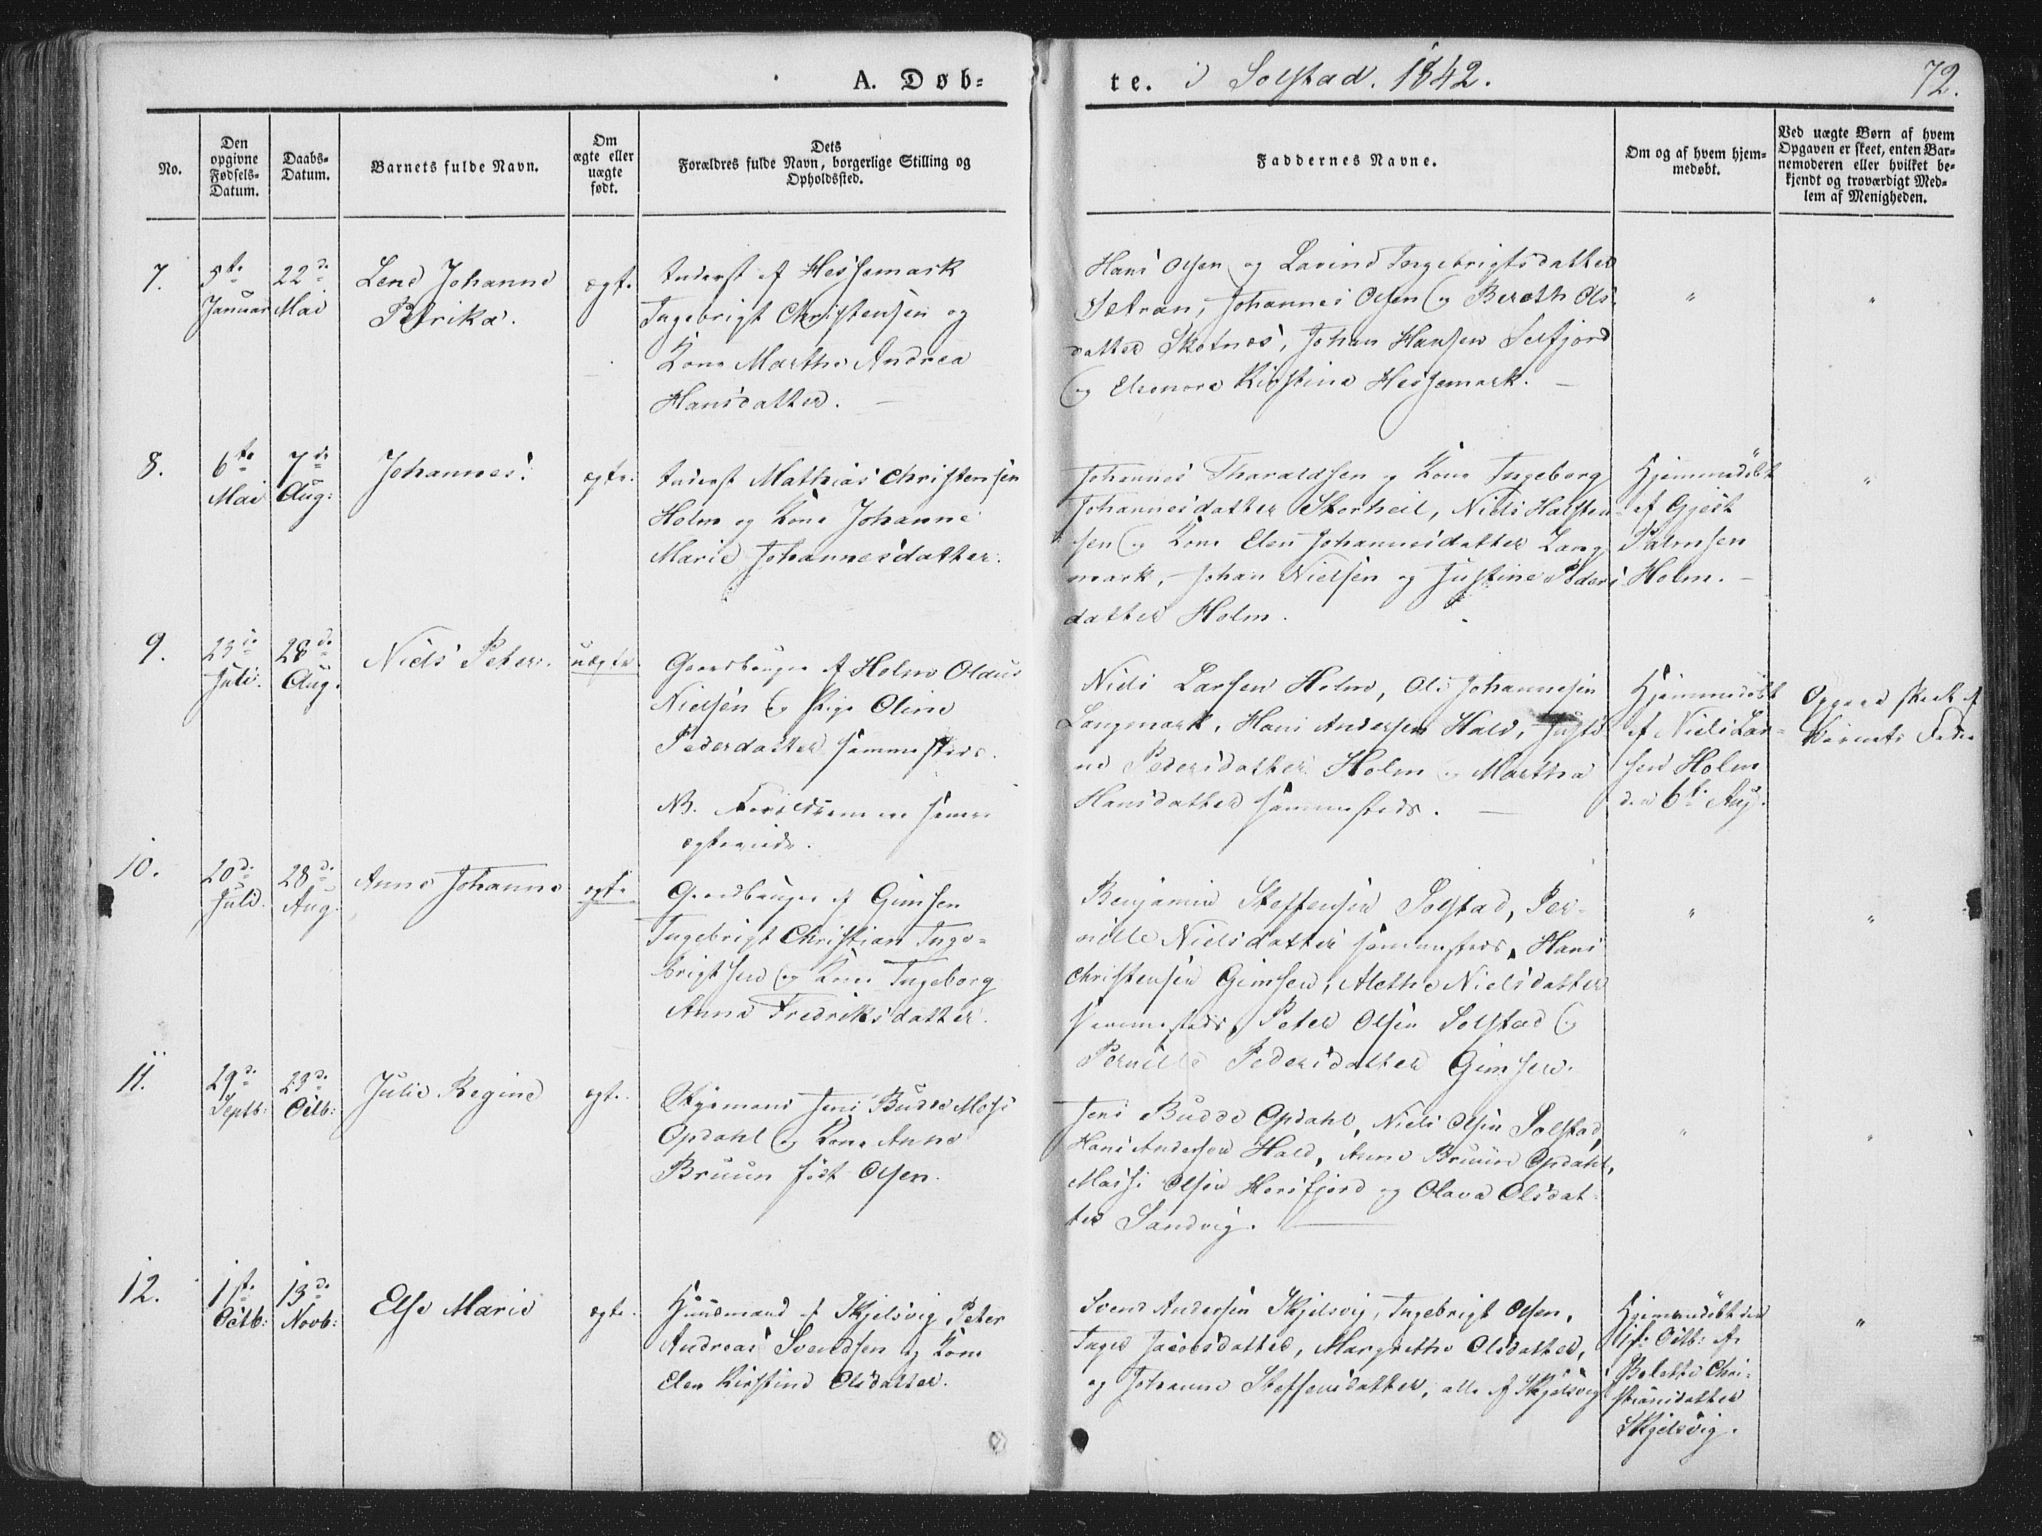 A. Døb-
te. i Solstad. 1842.
72.
No.
Den
opgivne
Fødsels-
Datum.
Daabs-
Datum.
Barnets fulde Navn.
Om
ægte eller
uægte
født.
Dets
Forældres fulde Navn, borgerlige Stilling og
Opholdssted.
Faddernes Navne.
Om og af hvem hjem-
medøbt.
Ved uægte Børn af hvem
Opgaven er skeet, enten Bar-
nemoderen eller hvilket be-
kjendt og troværdigt Med-
lem af Menigheden.
7.
5te
Januar
22de
Mai
Lene Johanne
Petrika.
ægt.
Inderst af Hessemark
Ingebrigt Christensen og
Kone Marthe Andrea
Hansdatter.
Hans Olsen og Lavine Ingebrigtsdatter
Setran, Johannes Olsen og Bereth Ols-
datter Skotnes, Johan Hansen Selfjord
og Elenora Kirstine Hessemark. —
"
"
8.
6te
Mai
7de
Aug:
Johannes.
ægte.
Inderst Mathias Christensen
Holm og Kone Johanne
Marie Johannesdatter.
Johannes Tharaldsen og Kone Ingeborg
Johannesdatter Storheil, Niels Halsten-
sen og Kone Elen Johannesdatter Lang-
mark, Johan Nielsen og Justine Peders-
datter Holm.
Hjemmedøbt
af Gjert
Palmsen
Holm. —
"
9.
23de
Juli.
28de
Aug.
Niels Peter.
uægte.
Gaardbruger af Holm Olaus
Nielsen og Pige Oline
Pedersdatter sammesteds.
NB. Forældrene ere senere
ægteviede.
Niels Larsen Holm, Ole Johannesen
Langmark, Hans Andersen Hald, Justi-
ne Pedersdatter Holm og Martha
Hansdatter sammesteds. —
Hjemmedøbt
af Niels Lar-
sen Holm
den 6te Aug.
Opgave skeet af
Barnets Fader
10.
20de
Juli.
28de
Aug.
Anne Johanne
ægte
Gaardbruger af Gimsen
Ingebrigt Christian Inge-
brigtsen og Kone Ingeborg
Anna Fredriksdatter.
Benjamin Steffensen Solstad, Per-
nille Nielsdatter sammesteds, Hans
Christensen Gimsen, Alethe Nielsdatter
sammesteds, Peter Olsen Solstad og
Pernille Pedersdatter Gimsen.
"
"
11.
29de
Septb:
23de
Octb:
Julie Regine
ægt.
Styrmand Jens Budde
Opdahl og Kone Anne
Bruun født Olsen.
Jens Budde Opdahl, Niels Olsen Solstad,
Hans Andersen Hald, Anne Bruun Opdahl,
Olsen Horsfjord og Olava Olsdat-
ter Sandvig. —
"
"
12.
1ste
Octb:
13de
Novb:
Else Marie
ægte.
Huusmand af Skjelsvig Peter
Andreas Svendsen og Kone
Elen Kirstine Olsdatter.
Svend Andersen Skjelsvig, Ingebrigt Olsen,
Inger Jacobsdatter, Margrethe Olsdatter,
og Johanne Steffensdatter, alle af Skjelsvig
Hjemmedøbt den
Octb: af
Bolette Chri-
stiansdatter
Skjelsvig.
"